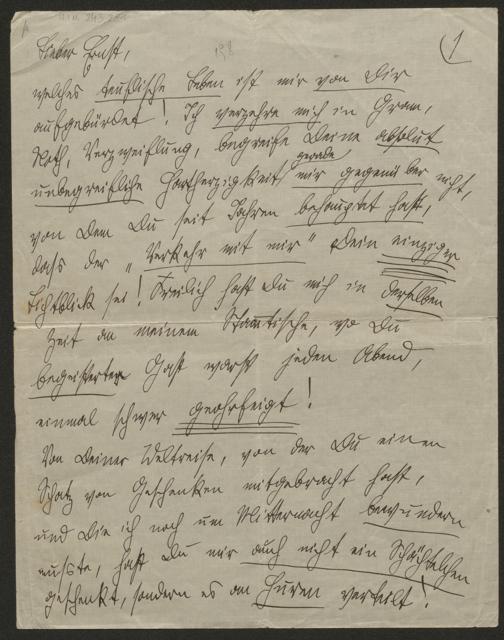 (1
Lieber Ernst,
welches teuflische Leben ist mir von Dir
aufgebürdet! Ich verzehre mich in Gram,
Noth, Verzweiflung, begreife Deine absolut
unbegreifliche Hartherzigkeit gerade mir gegenüber nicht,
von dem Du seit Jahren behauptet hast,
dass der „Verkehr mit mir" Dein einziger
Lichtblick sei! Freilich hast Du mich in derselben
Zeit an meinem Stammtische, wo Du
begeisterter Gast warst jeden Abend,
einmal schwer geohrfeigt!
Von Deiner Weltreise, von der Du einen
Schatz von Geschenken mitgebracht hast,
und die ich noch um Mitternacht bewundern
musste, hast Du mir auch nicht ein Schächtelchen
geschenkt, sondern es an Huren verteilt!